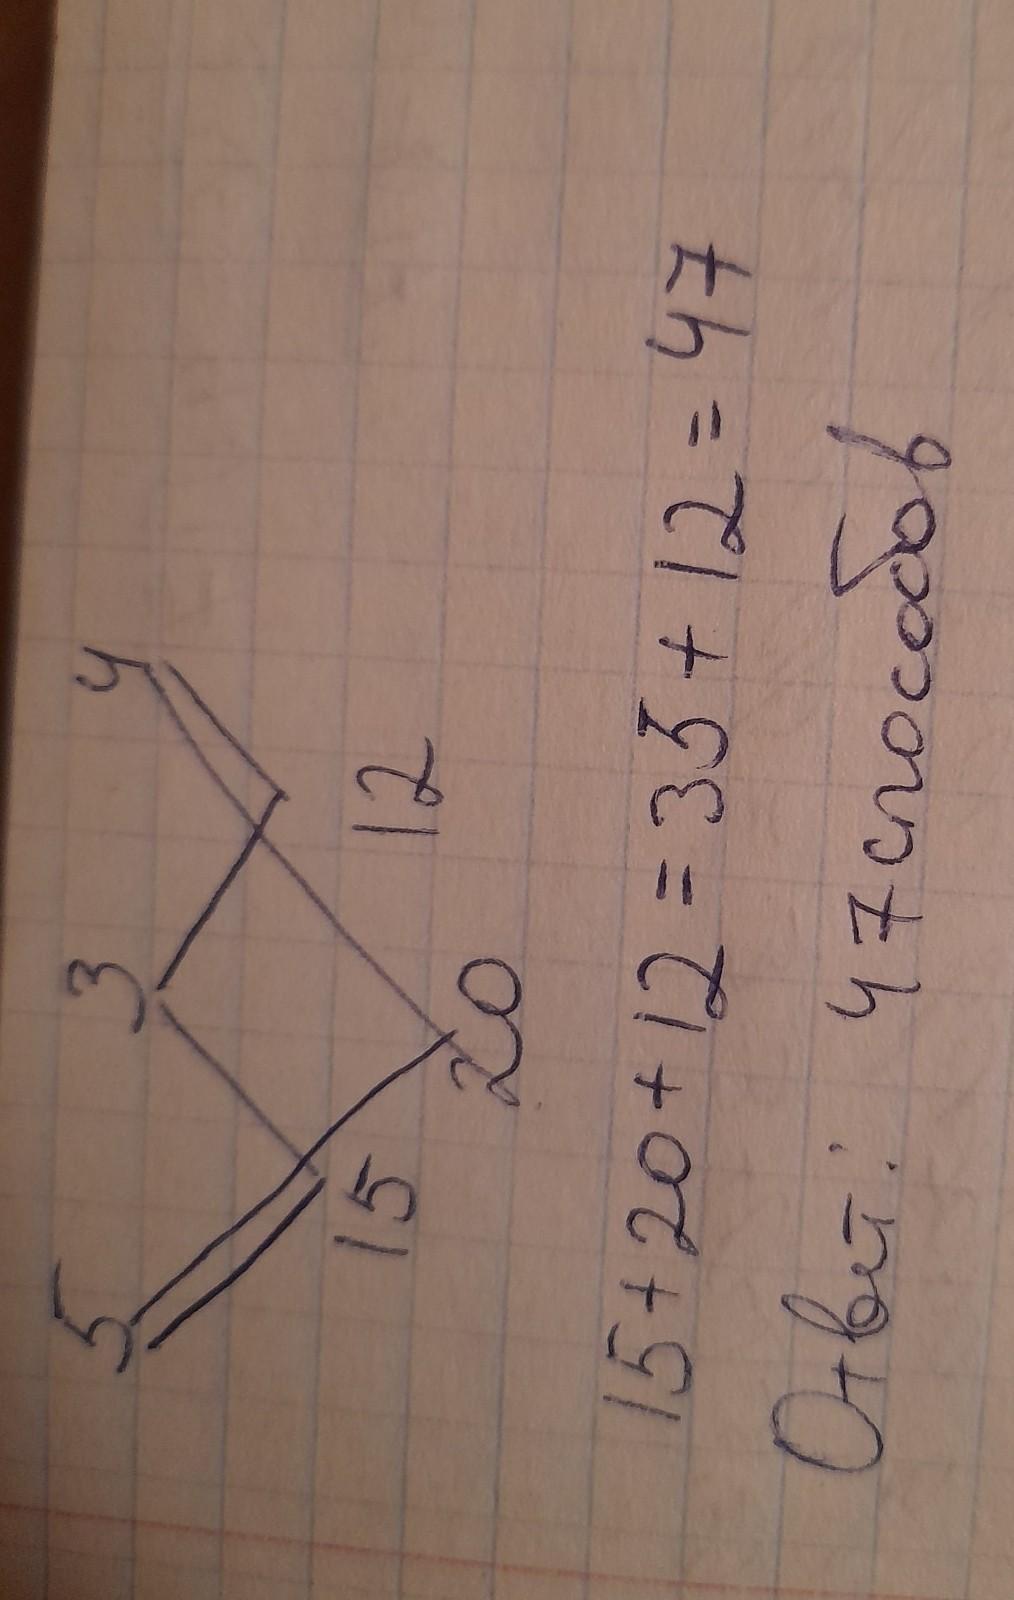 5 3 4
15 12
20
15+20+12=35+12=47
Ответ: 47 способов